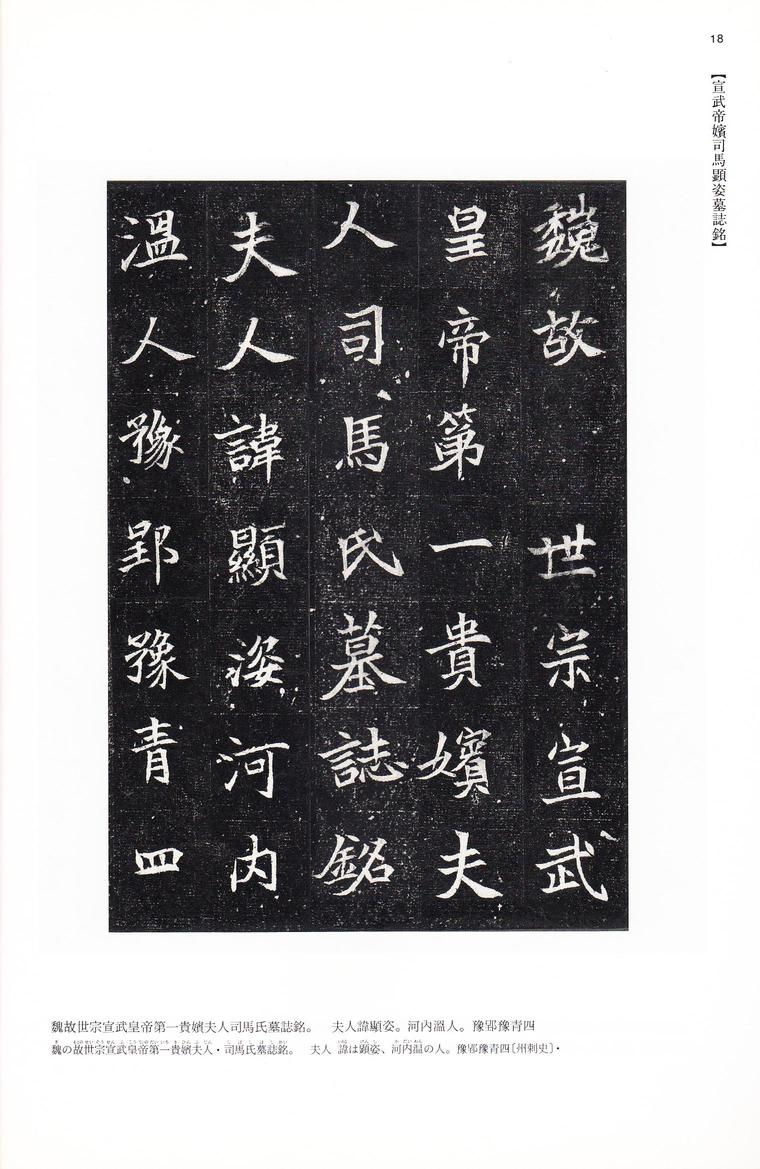 18
【宣武帝嬪司馬顕姿墓誌銘】
魏故　世宗宣武
皇帝第一貴嬪夫
人司馬氏墓誌銘
夫人諱顯姿河內
溫人豫郢豫青四
魏故世宗宣武皇帝第一貴嬪夫人司馬氏墓誌銘。　夫人諱顯姿。河內溫人。豫郢豫青四
魏の故世宗宣武皇帝第一貴嬪夫人・司馬氏墓誌銘。　夫人　諱は顕姿、河内温の人。豫郢豫青四〔州刺史〕・